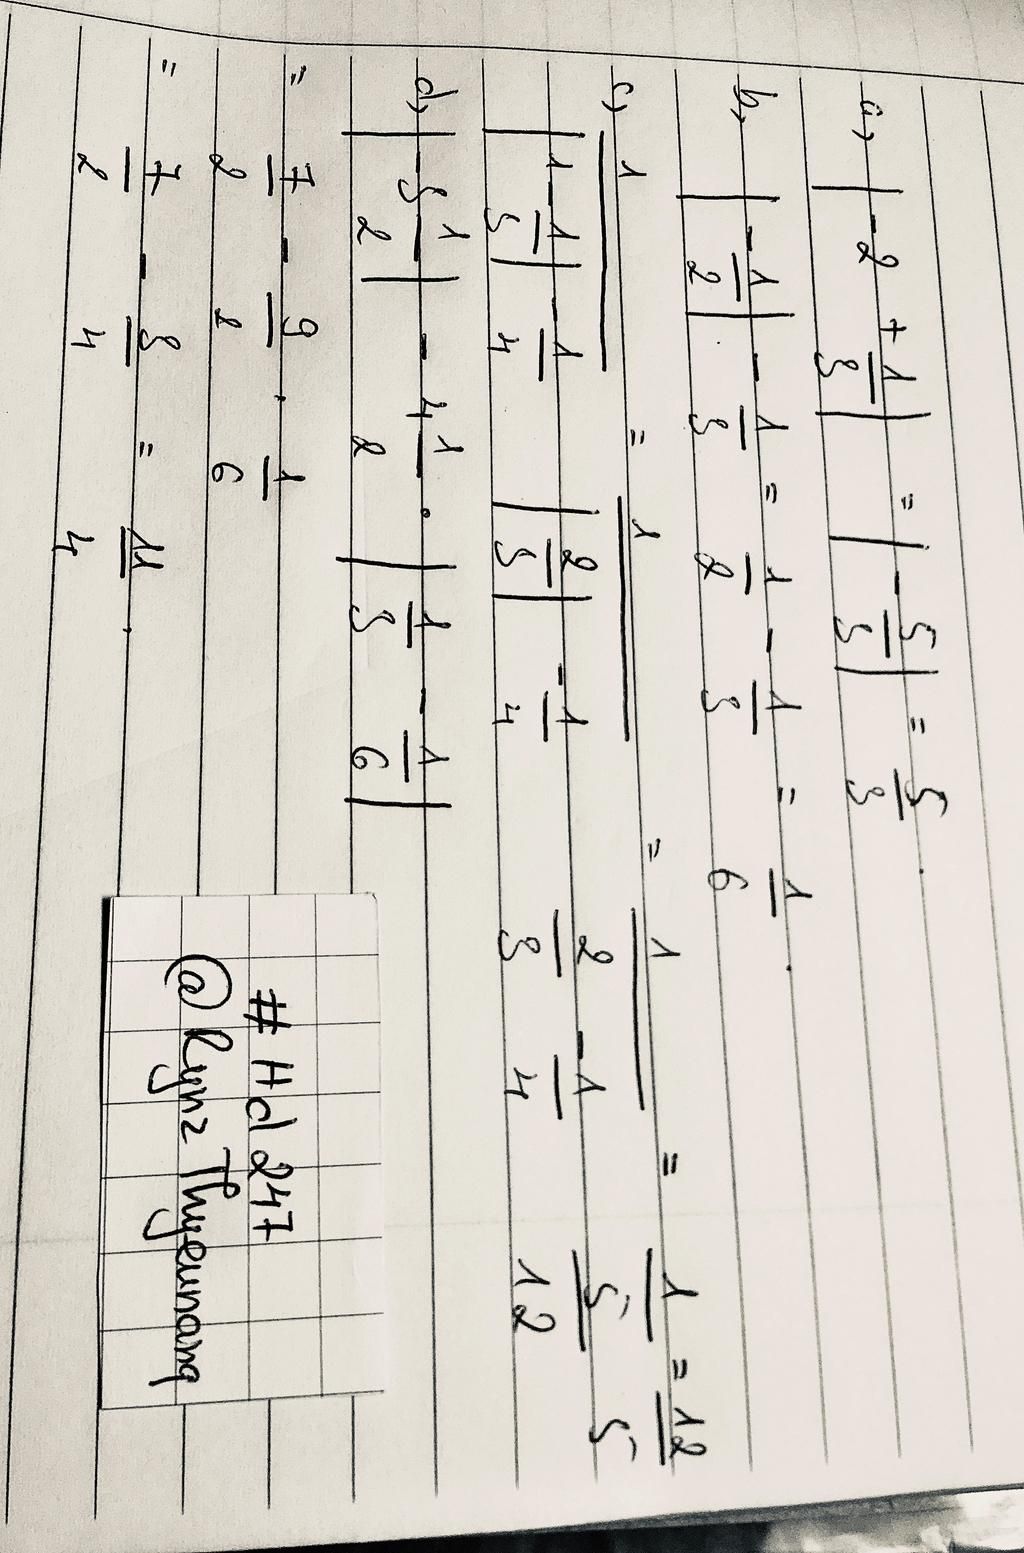 a, |-2 + 1/3| = |-5/3| = 5/3.
b, |-1/2| - 1/3 = 1/2 - 1/3 = 1/6.
c, 1/(|1 - 1/3| - 1/4) = 1/(|2/3| - 1/4) = 1/(2/3 - 1/4) = 1/(5/12) = 12/5
d, |-3 1/2| - 4 1/2 . |1/3 - 1/6|
= 7/2 - 9/2 . 1/6
= 7/2 - 3/4 = 11/4.
# Hd 247